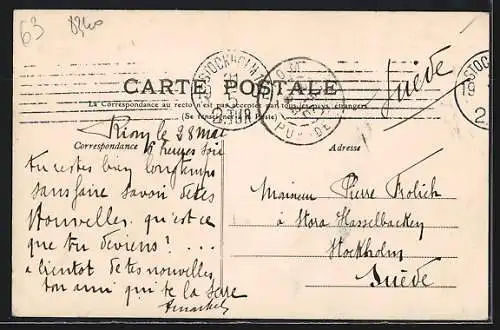 63
CARTE POSTALE
La Correspondance au recto n'est pas acceptée par tous les pays étrangers
(Se renseigner à la Poste)
Suède
STOCKHOLM
PUY-DE
STOCK
Correspondance
Adresse
Riom le 28 Mai
5 heures soir
tu restes bien longtemps
sans faire savoir de tes
Nouvelles. qu'est ce
que tu deviens? . . .
a bientot de tes nouvelles
ton ami qui te la serre
Monsieur Pierre Frolich
à Stora Hasselbacken
Stockholm
Suède